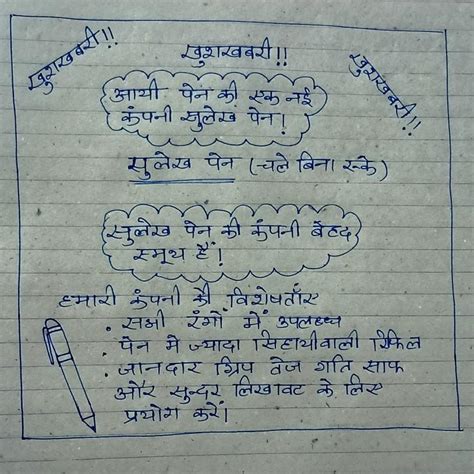 खुशखबरी!!
खुशखबरी!!
खुशखबरी!!
आयी पेन की एक नई
कंपनी सुलेख पेन!
सुलेख पेन (चले बिना रुके)
सुलेख पेन की कंपनी बेहद
स्मूथ हैं!
हमारी कंपनी की विशेषताँए
• सभी रंगों में उपलब्ध
• पेन मे ज्यादा सिहायीवाली रिफिल
• जानदार ग्रिप तेज गति साफ
और सुन्दर लिखावट के लिए
प्रयोग करें।